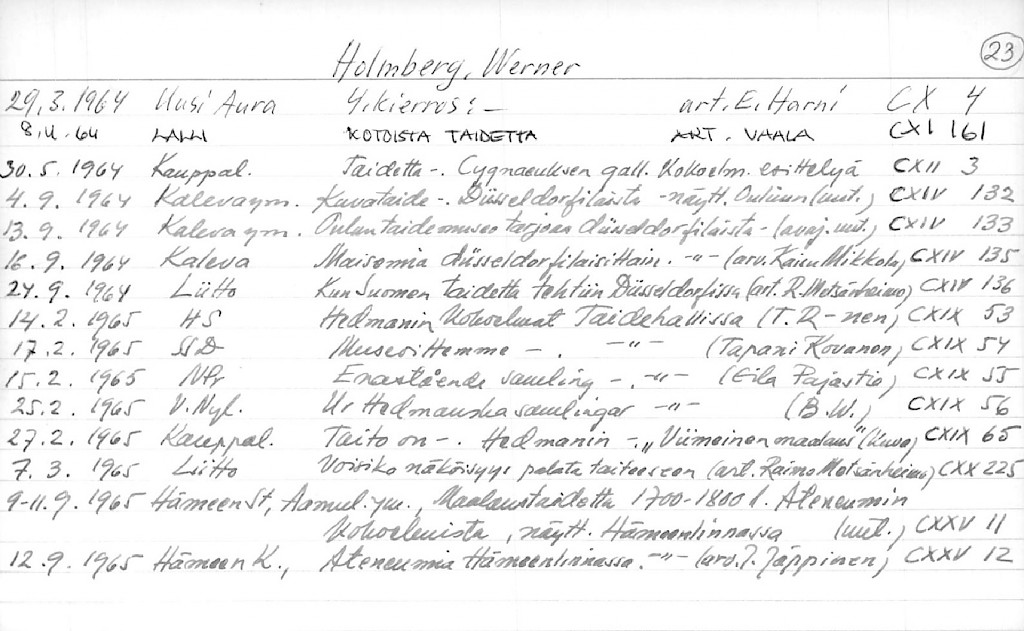 23
Holmberg, Werner
29.3.1964 Uusi Aura Y.kierros: - art. E. Harni CX 4
8.4.64 LALLI KOTOISTA TAIDETTA ART. VAALA CXI 161
30.5.1964 Kauppal. Taidetta -. Cygnaeuksen gall. Kokoelm. esittelyä CXII 3
4.9.1964 Kaleva ym. Kuvataide -. Düsseldorfilaista -näytt. Ouluun (uut.) CXIV 132
13.9.1964 Kaleva ym. Oulun taidemuseo tarjoaa düsseldorfilaista - (avaj. uut.) CXIV 133
16.9.1964 Kaleva Maisemia düsseldorfilaisittain. -"- (arv. Kaisu Mikkola) CXIV 135
24.9.1964 Liitto Kun Suomen taidetta tehtiin Düsseldorfissa (art. R. Metsänheimo) CXIV 136
14.2.1965 HS Hedmanin kokoelmat Taidehallissa (T. R-nen) CXIX 53
17.2. 1965 SSD Museoittemme -. -"- (Tapani Kovanen) CXIX 54
15.2. 1965 NPr Enastående samling -. -"- (Eila Pajastie) CXIX 55
25.2. 1965 V. Nyl. Ur Hedmanska samlingar -"- (B.W.) CXIX 56
27.2. 1965 Kauppal. Taito on -. Hedmanin -. "Viimeinen maalaus" (kuva) CXIX 65
7.3. 1965 Liitto Voisiko näköisyys palata taiteeseen (art. Raimo Metsänheimo) CXX 225
9-11.9.1965 Hämeen St, Aamul. ym., Maalaustaidetta 1700-1800 l. Ateneumin
kokoelmista, näytt. Hämeenlinnassa (uut.) CXXV 11
12.9.1965 Hämeen K., Ateneumia Hämeenlinnassa. -"- (arv. J. Jäppinen) CXXV 12